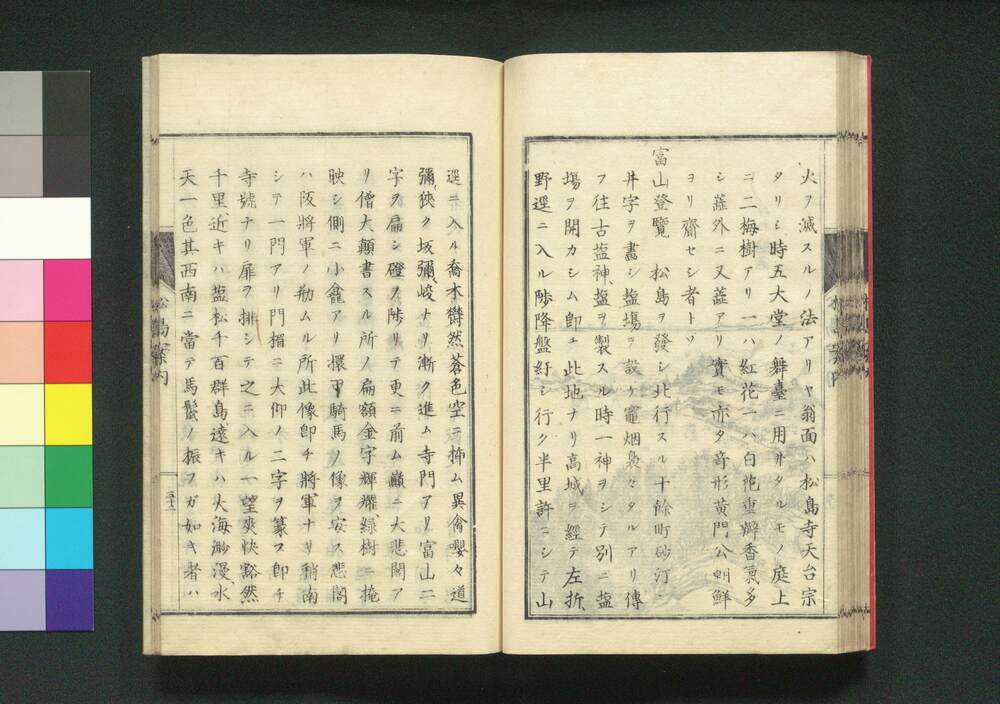 火ヲ滅スルノ法アリヤ翁面ハ松島寺天台宗
タリシ時五大堂ノ舞臺ニ用井タルモノ庭上
ニ二梅樹アリ一ハ紅花一ハ白花重瓣香氣多
シ莚外ニ又莚アリ實モ亦タ奇形黄門公朝鮮
ヨリ齎セシ者トソ
富山登覽 松島ヲ發シ北行スル十餘町砂汀
井字ヲ畫シ塩場ヲ設ケ竈烟裊々タルアリ傳
フ往古塩神塩ヲ製スル時一神ヲシテ別ニ塩
場ヲ開カシム即エ此地ナリ高城ヲ經テ左折
野逕ニ入ル陟降盤紆シ行ク半里許ニシテ山
逕ニ入ル喬木欝然蒼色空ニ揷ム異禽嚶々道
彌狹ク坂彌峻ナリ漸ク進ム寺門アリ富山二
字ヲ扁シ磴ヲ陟リテ更ニ前ム巓ニ大悲閣ア
リ僧大顛書スル所ノ扁額金字輝耀緑樹ニ掩
映シ側ニ小龕アリ擐甲騎馬ノ像ヲ安ス悲閣
ハ阪將軍ノ剏ムル所此像即チ將軍ナリ稍南
シテ一門アリ門楣ニ大仰ノ二字ヲ篆ス即チ
寺號ナリ扉ヲ排シテ之ニ入ル一望爽快豁然
千里近キハ盐松千百群島遠キハ大海渺漫水
天一色其西南ニ當テ馬鬛ノ振フガ如キ者ハ
松島案内